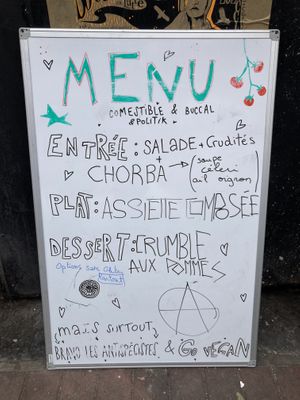 MENU
COMESTIBLE & BUCCAL
& POLITIK
ENTRÉE : SALADE + Crudités
+
CHORBA → (soupe
céleri
ail oignon)
PLAT : ASSIETTE COMPOSÉE
DESSERT : CRUMBLE
AUX POMMES
Options sans
partout
mais surtout
BRAVO LES ANTISPÉCISTES & GO VEGAN